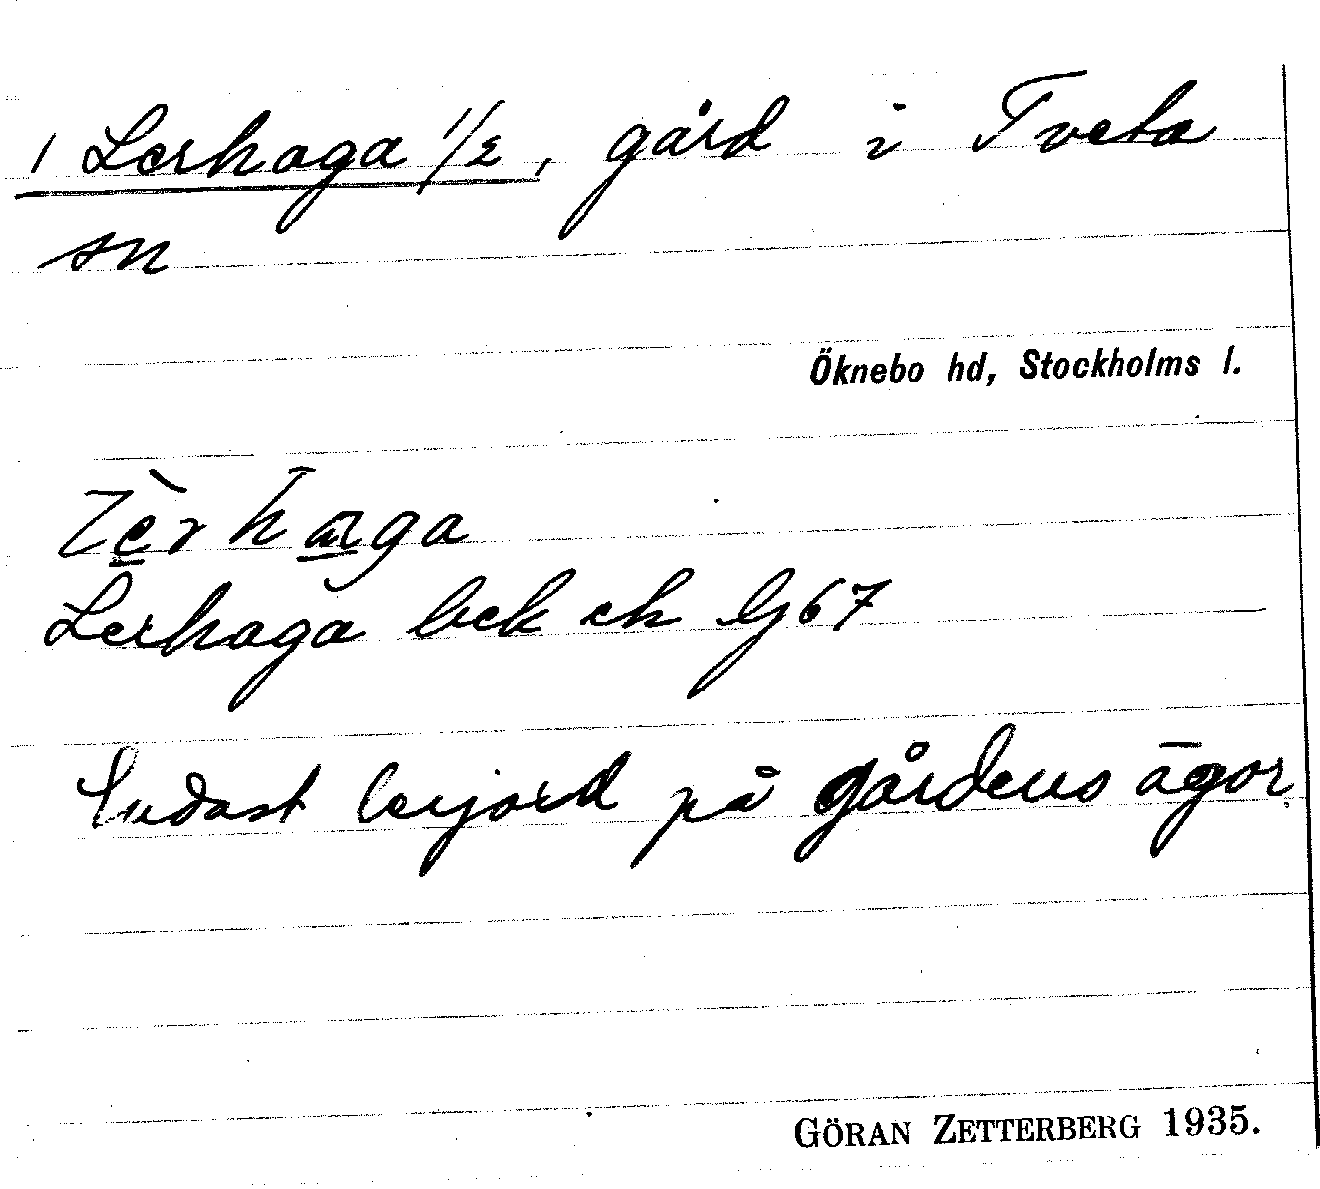 1 Lerhaga 1/2, gård i Tveta
sn
Öknebo hd, Stockholms l.
Lerhaga bek ek bl 67
Endast lerjord på gårdens ägor.
GÖRAN ZETTERBERG 1935.